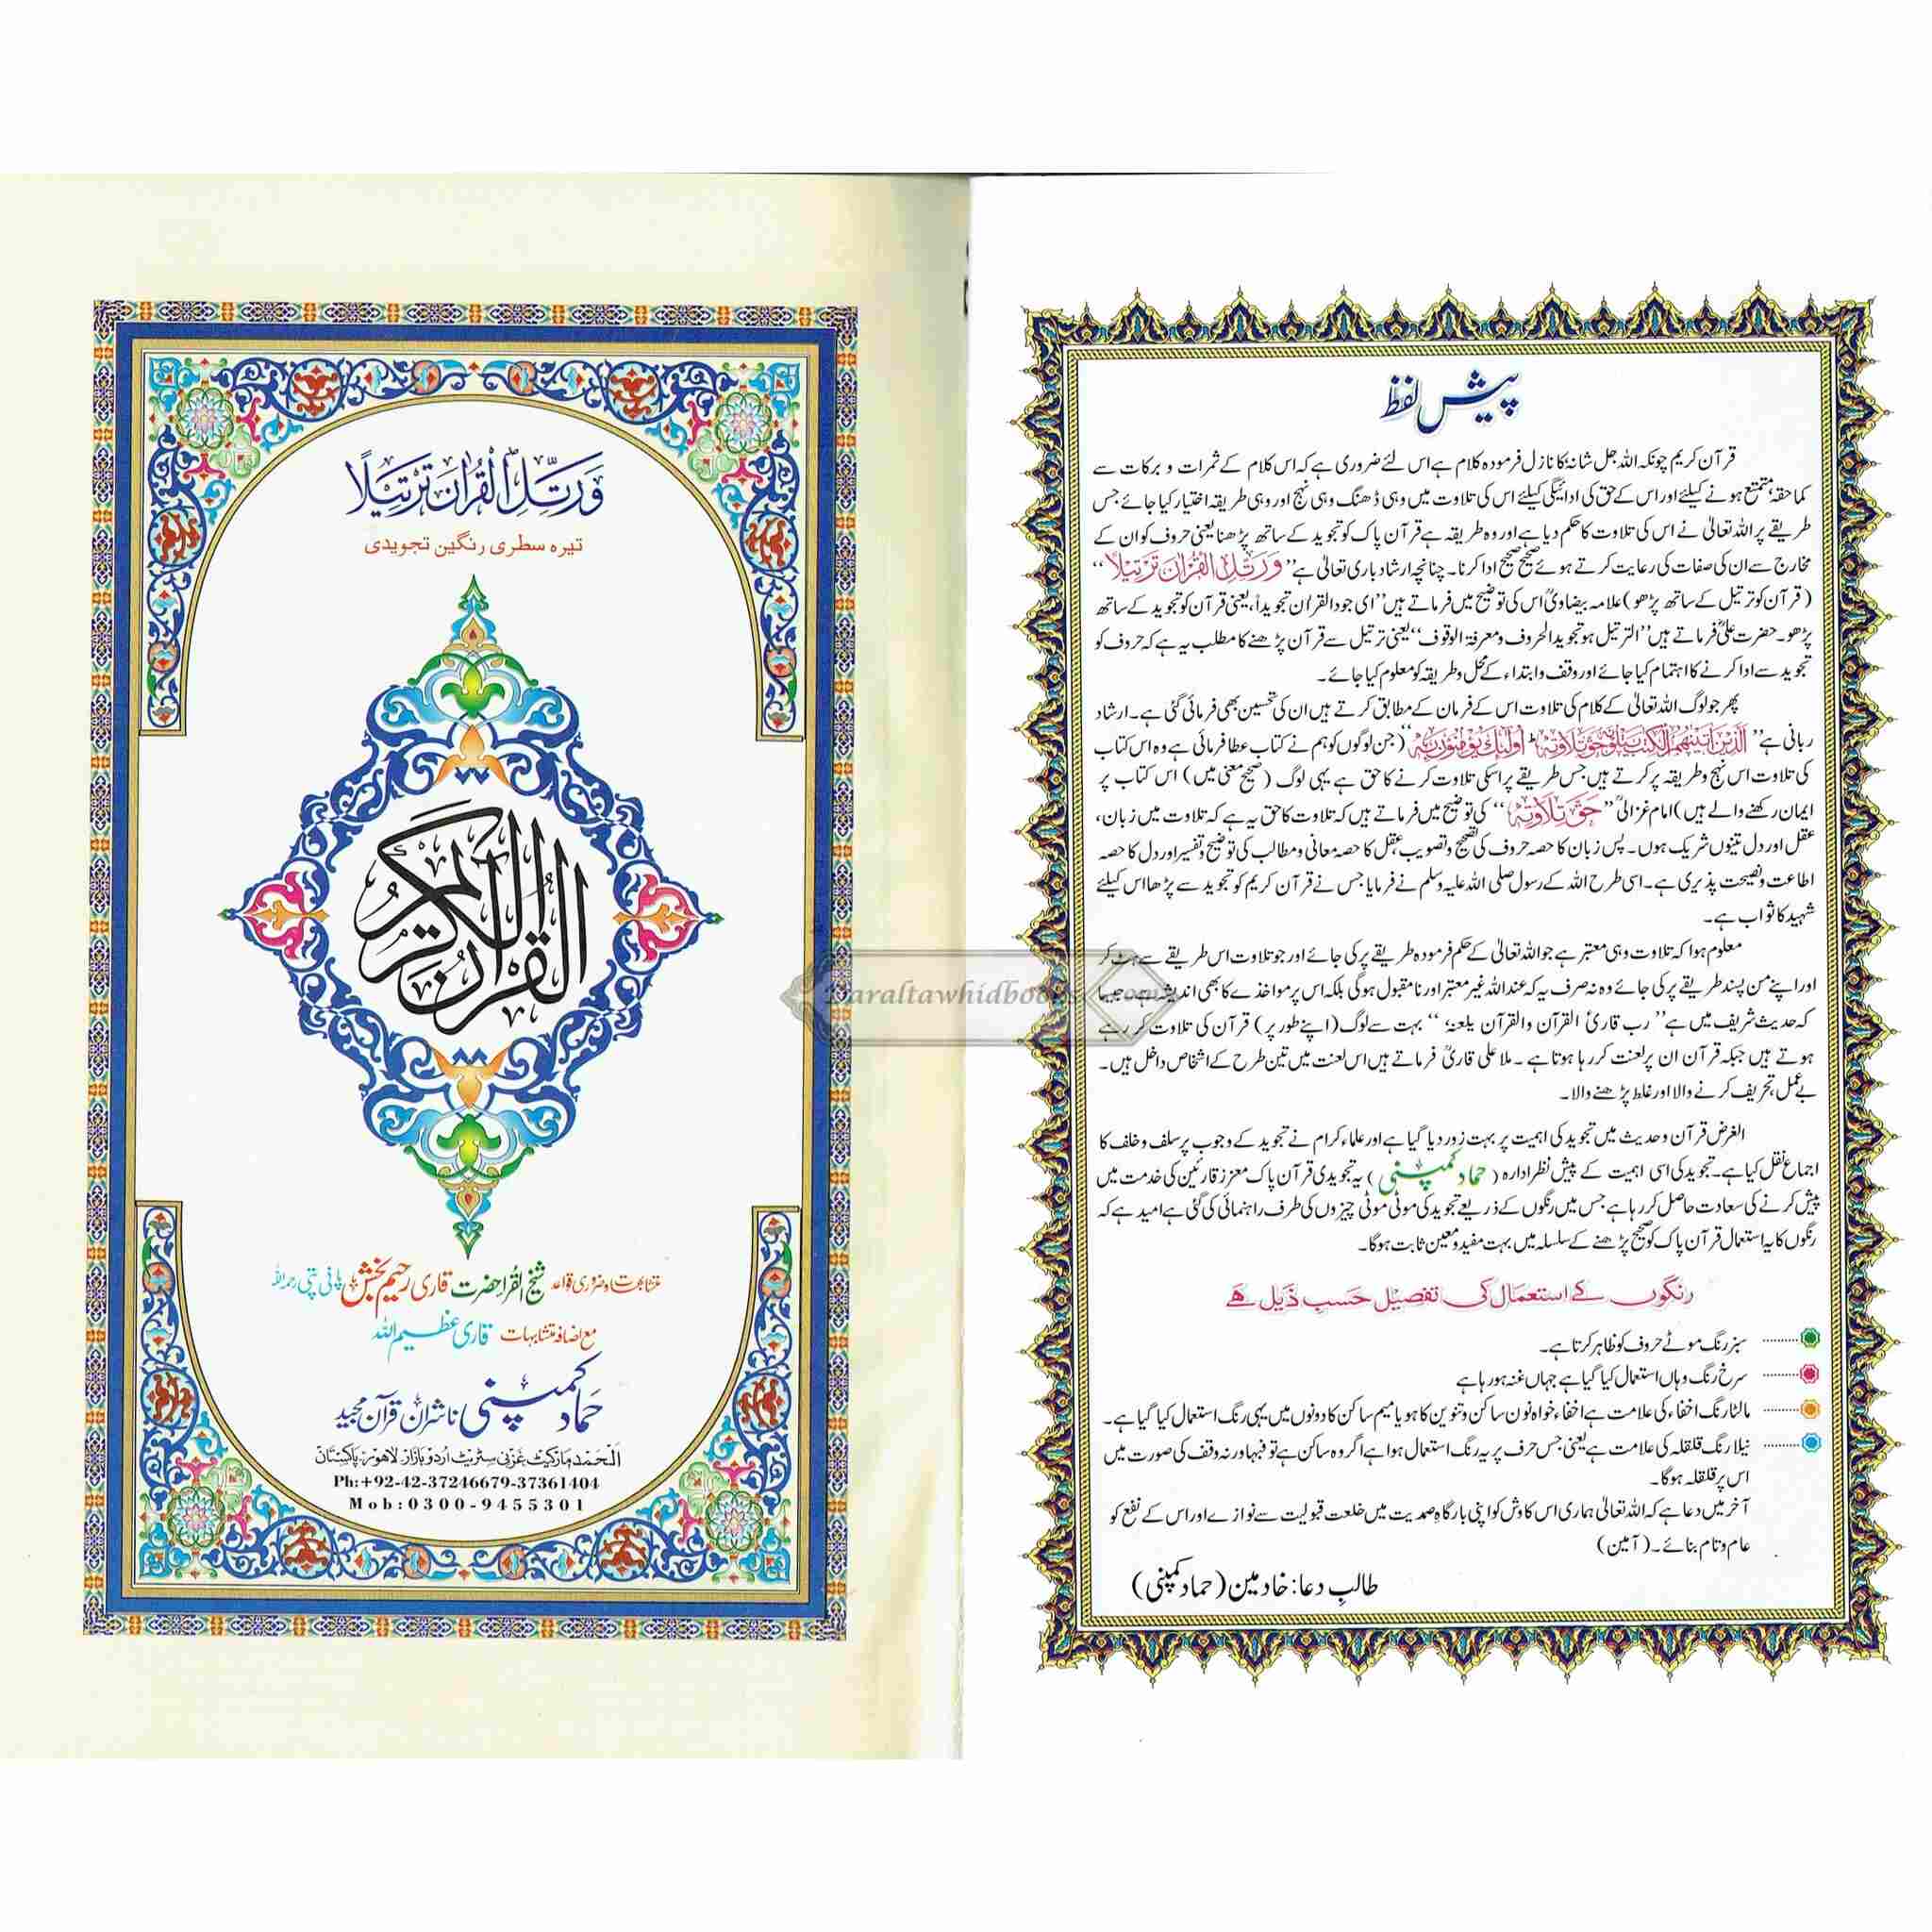 وَرَتِّلِ الْقُرْاٰنَ تَرْتِیْلًا
تیرہ سطری رنگین تجویدی
القرآن الکریم
متشابہات و ضروری قواعد شیخ القراء حضرت قاری رحیم بخش پانی پتی رحمہ اللہ
مع اضافہ متشابہات قاری عظیم اللہ
حماد کمپنی ناشران قرآن مجید
الحمد مارکیٹ غزنی سٹریٹ اردو بازار لاھور پاکستان
Ph:+92-42-37246679-37361404
Mob:0300-9455301
پیش لفظ
قرآن کریم چونکہ اللہ جل شانہ کا نازل فرمودہ کلام ہے اس لئے ضروری ہے کہ اس کلام کے ثمرات و برکات سے
کما حقہ متمتع ہونے کیلئے اور اس کے حق کی ادائیگی کیلئے اس کی تلاوت میں وہی ڈھنگ وہی نہج اور وہی طریقہ اختیار کیا جائے جس
طریقے پر اللہ تعالیٰ نے اس کی تلاوت کا حکم دیا ہے اور وہ طریقہ ہے قرآن پاک کو تجوید کے ساتھ پڑھنا یعنی حروف کو ان کے
مخارج سے ان کی صفات کی رعایت کرتے ہوئے صحیح صحیح ادا کرنا۔ چنانچہ ارشاد باری تعالیٰ ہے ’’وَرَتِّلِ الْقُرْاٰنَ تَرْتِیْلًا‘‘
(قرآن کو ترتیل کے ساتھ پڑھو) علامہ بیضاویؒ اس کی توضیح میں فرماتے ہیں ’’ای جود القراٰن تجویداً، یعنی قرآن کو تجوید کے ساتھ
پڑھو۔ حضرت علیؓ فرماتے ہیں ’’الترتیل ہو تجوید الحروف ومعرفۃ الوقوف‘‘ یعنی ترتیل سے قرآن پڑھنے کا مطلب یہ ہے کہ حروف کو
تجوید سے ادا کرنے کا اہتمام کیا جائے اور وقف و ابتداء کے محل و طریقہ کو معلوم کیا جائے۔
پھر جو لوگ اللہ تعالیٰ کے کلام کی تلاوت اس کے فرمان کے مطابق کرتے ہیں ان کی تحسین بھی فرمائی گئی ہے۔ ارشاد
ربانی ہے ’’الَّذِیْنَ اٰتَیْنٰهُمُ الْكِتٰبَ یَتْلُوْنَهٗ حَقَّ تِلَاوَتِهٖ ؕ اُولٰٓئِكَ یُؤْمِنُوْنَ بِهٖ‘‘ (جن لوگوں کو ہم نے کتاب عطا فرمائی ہے وہ اس کتاب
کی تلاوت اس نہج و طریقہ پر کرتے ہیں جس طریقے پر اسکی تلاوت کرنے کا حق ہے یہی لوگ (صحیح معنی میں) اس کتاب پر
ایمان رکھنے والے ہیں) امام غزالیؒ ’’حَقَّ تِلَاوَتِهٖ‘‘ کی توضیح میں فرماتے ہیں کہ تلاوت کا حق یہ ہے کہ تلاوت میں زبان،
عقل اور دل تینوں شریک ہوں۔ پس زبان کا حصہ حروف کی تصحیح و تصویب، عقل کا حصہ معانی و مطالب کی توضیح و تفسیر اور دل کا حصہ
اطاعت و نصیحت پذیری ہے۔ اسی طرح اللہ کے رسول صلی اللہ علیہ وسلم نے فرمایا جس نے قرآن کریم کو تجوید سے پڑھا اس کیلئے
شہید کا ثواب ہے۔
معلوم ہوا کہ تلاوت وہی معتبر ہے جو اللہ تعالیٰ کے حکم فرمودہ طریقے پر کی جائے اور جو تلاوت اس طریقے سے ہٹ کر
اور اپنے من پسند طریقے پر کی جائے وہ نہ صرف یہ کہ عند اللہ غیر معتبر اور نا مقبول ہوگی بلکہ اس پر مواخذے کا بھی اندیشہ ہے جیسا
کہ حدیث شریف میں ہے ’’رب قاریٔ القرآن والقرآن یلعنہ‘‘ بہت سے لوگ (اپنے طور پر) قرآن کی تلاوت کر رہے
ہوتے ہیں جبکہ قرآن ان پر لعنت کر رہا ہوتا ہے۔ ملا علی قاریؒ فرماتے ہیں اس لعنت میں تین طرح کے اشخاص داخل ہیں۔
بے عمل، تحریف کرنے والا اور غلط پڑھنے والا۔
الغرض قرآن و حدیث میں تجوید کی اہمیت پر بہت زور دیا گیا ہے اور علماء کرام نے تجوید کے وجوب پر سلف و خلف کا
اجماع نقل کیا ہے۔ تجوید کی اسی اہمیت کے پیش نظر ادارہ (حماد کمپنی) یہ تجویدی قرآن پاک معزز قارئین کی خدمت میں
پیش کرنے کی سعادت حاصل کر رہا ہے جس میں رنگوں کے ذریعے تجوید کی موٹی موٹی چیزوں کی طرف راہنمائی کی گئی ہے امید ہے کہ
رنگوں کا یہ استعمال قرآن پاک کو صحیح پڑھنے کے سلسلہ میں بہت مفید و معین ثابت ہوگا۔
رنگوں کے استعمال کی تفصیل حسب ذیل ہے
سبز رنگ موٹے حروف کو ظاہر کرتا ہے۔
سرخ رنگ وہاں استعمال کیا گیا ہے جہاں غنہ ہو رہا ہے
مالٹا رنگ اخفاء کی علامت ہے اخفاء خواہ نون ساکن و تنوین کا ہو یا میم ساکن کا دونوں میں یہی رنگ استعمال کیا گیا ہے۔
نیلا رنگ قلقلہ کی علامت ہے یعنی جس حرف پر یہ رنگ استعمال ہوا ہے اگر وہ ساکن ہے تو فبہا ورنہ وقف کی صورت میں
اس پر قلقلہ ہوگا۔
آخر میں دعا ہے کہ اللہ تعالیٰ ہماری اس کاوش کو اپنی بارگاہِ صمدیت میں خلعت قبولیت سے نوازے اور اس کے نفع کو
عام و تام بنائے۔ (آمین)
طالبِ دعا: خادمین (حماد کمپنی)